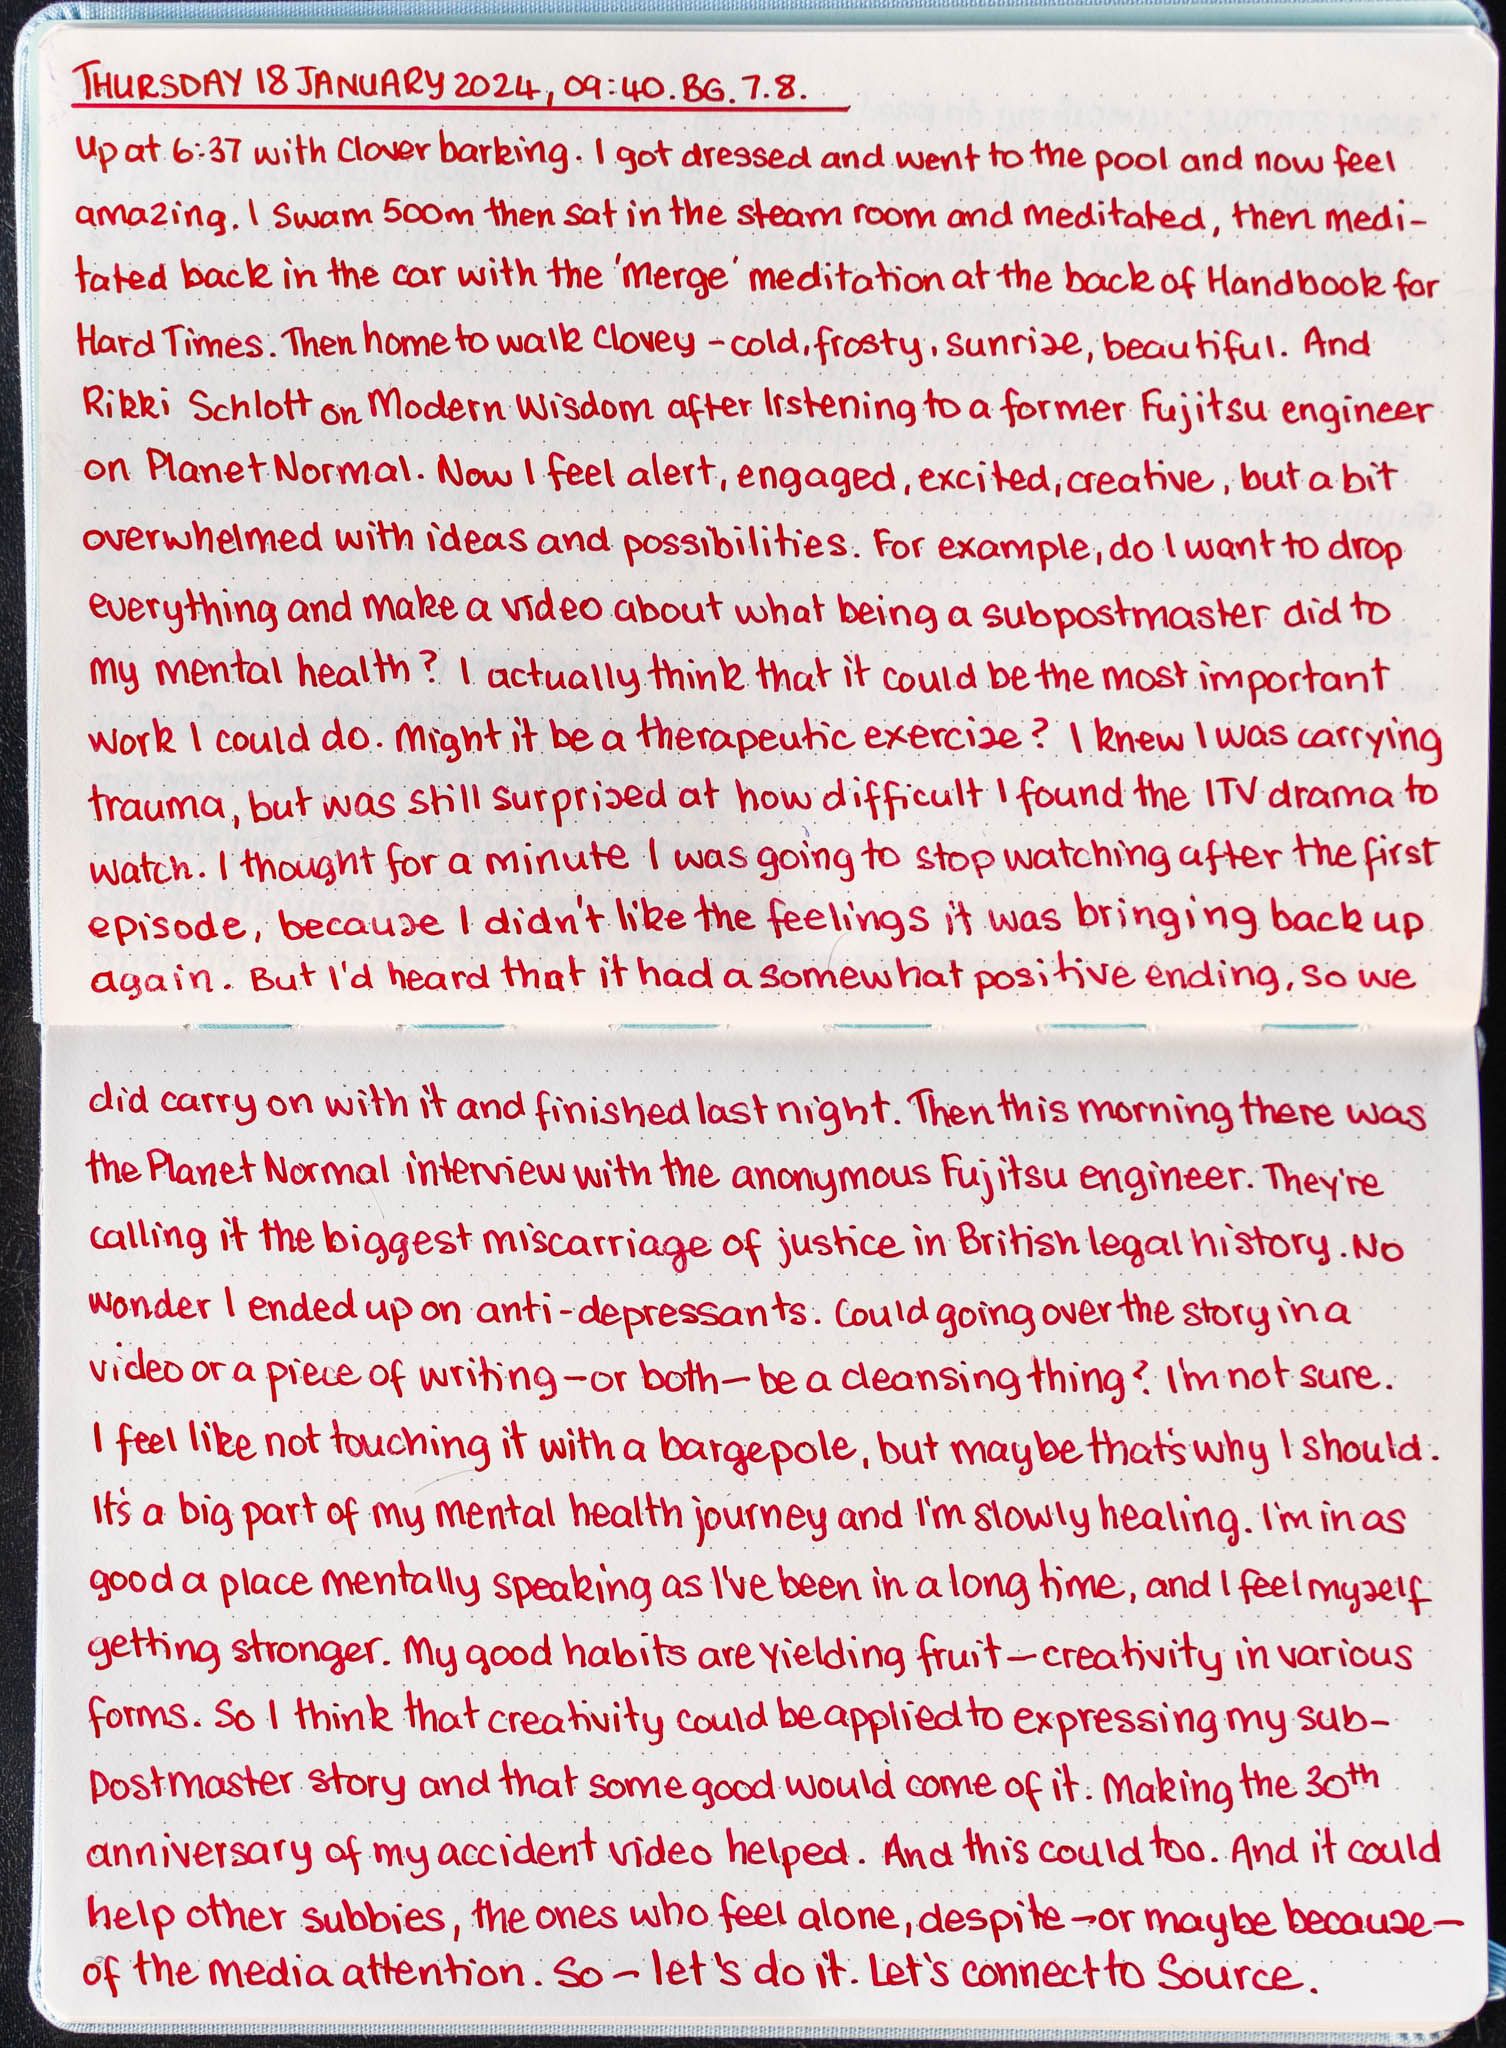 THURSDAY 18 JANUARY 2024, 09:40. BG. 7.8.
Up at 6:37 with Clover barking. I got dressed and went to the pool and now feel
amazing. I swam 500m then sat in the steam room and meditated, then medi-
tated back in the car with the 'merge' meditation at the back of Handbook for
Hard Times. Then home to walk Clovey - cold, frosty, sunrise, beautiful. And
Rikki Schlott on Modern Wisdom after listening to a former Fujitsu engineer
on Planet Normal. Now I feel alert, engaged, excited, creative, but a bit
overwhelmed with ideas and possibilities. For example, do I want to drop
everything and make a video about what being a subpostmaster did to
my mental health? I actually think that it could be the most important
work I could do. Might it be a therapeutic exercise? I knew I was carrying
trauma, but was still surprised at how difficult I found the ITV drama to
watch. I thought for a minute I was going to stop watching after the first
episode, because I didn't like the feelings it was bringing back up
again. But I'd heard that it had a somewhat positive ending, so we
did carry on with it and finished last night. Then this morning there was
the Planet Normal interview with the anonymous Fujitsu engineer. They're
calling it the biggest miscarriage of justice in British legal history. No
wonder I ended up on anti-depressants. Could going over the story in a
video or a piece of writing – or both – be a cleansing thing? I'm not sure.
I feel like not touching it with a bargepole, but maybe that's why I should.
It's a big part of my mental health journey and I'm slowly healing. I'm in as
good a place mentally speaking as I've been in a long time, and I feel myself
getting stronger. My good habits are yielding fruit – creativity in various
forms. So I think that creativity could be applied to expressing my sub-
postmaster story and that some good would come of it. Making the 30th
anniversary of my accident video helped. And this could too. And it could
help other subbies, the ones who feel alone, despite – or maybe because –
of the media attention. So – let's do it. Let's connect to Source.